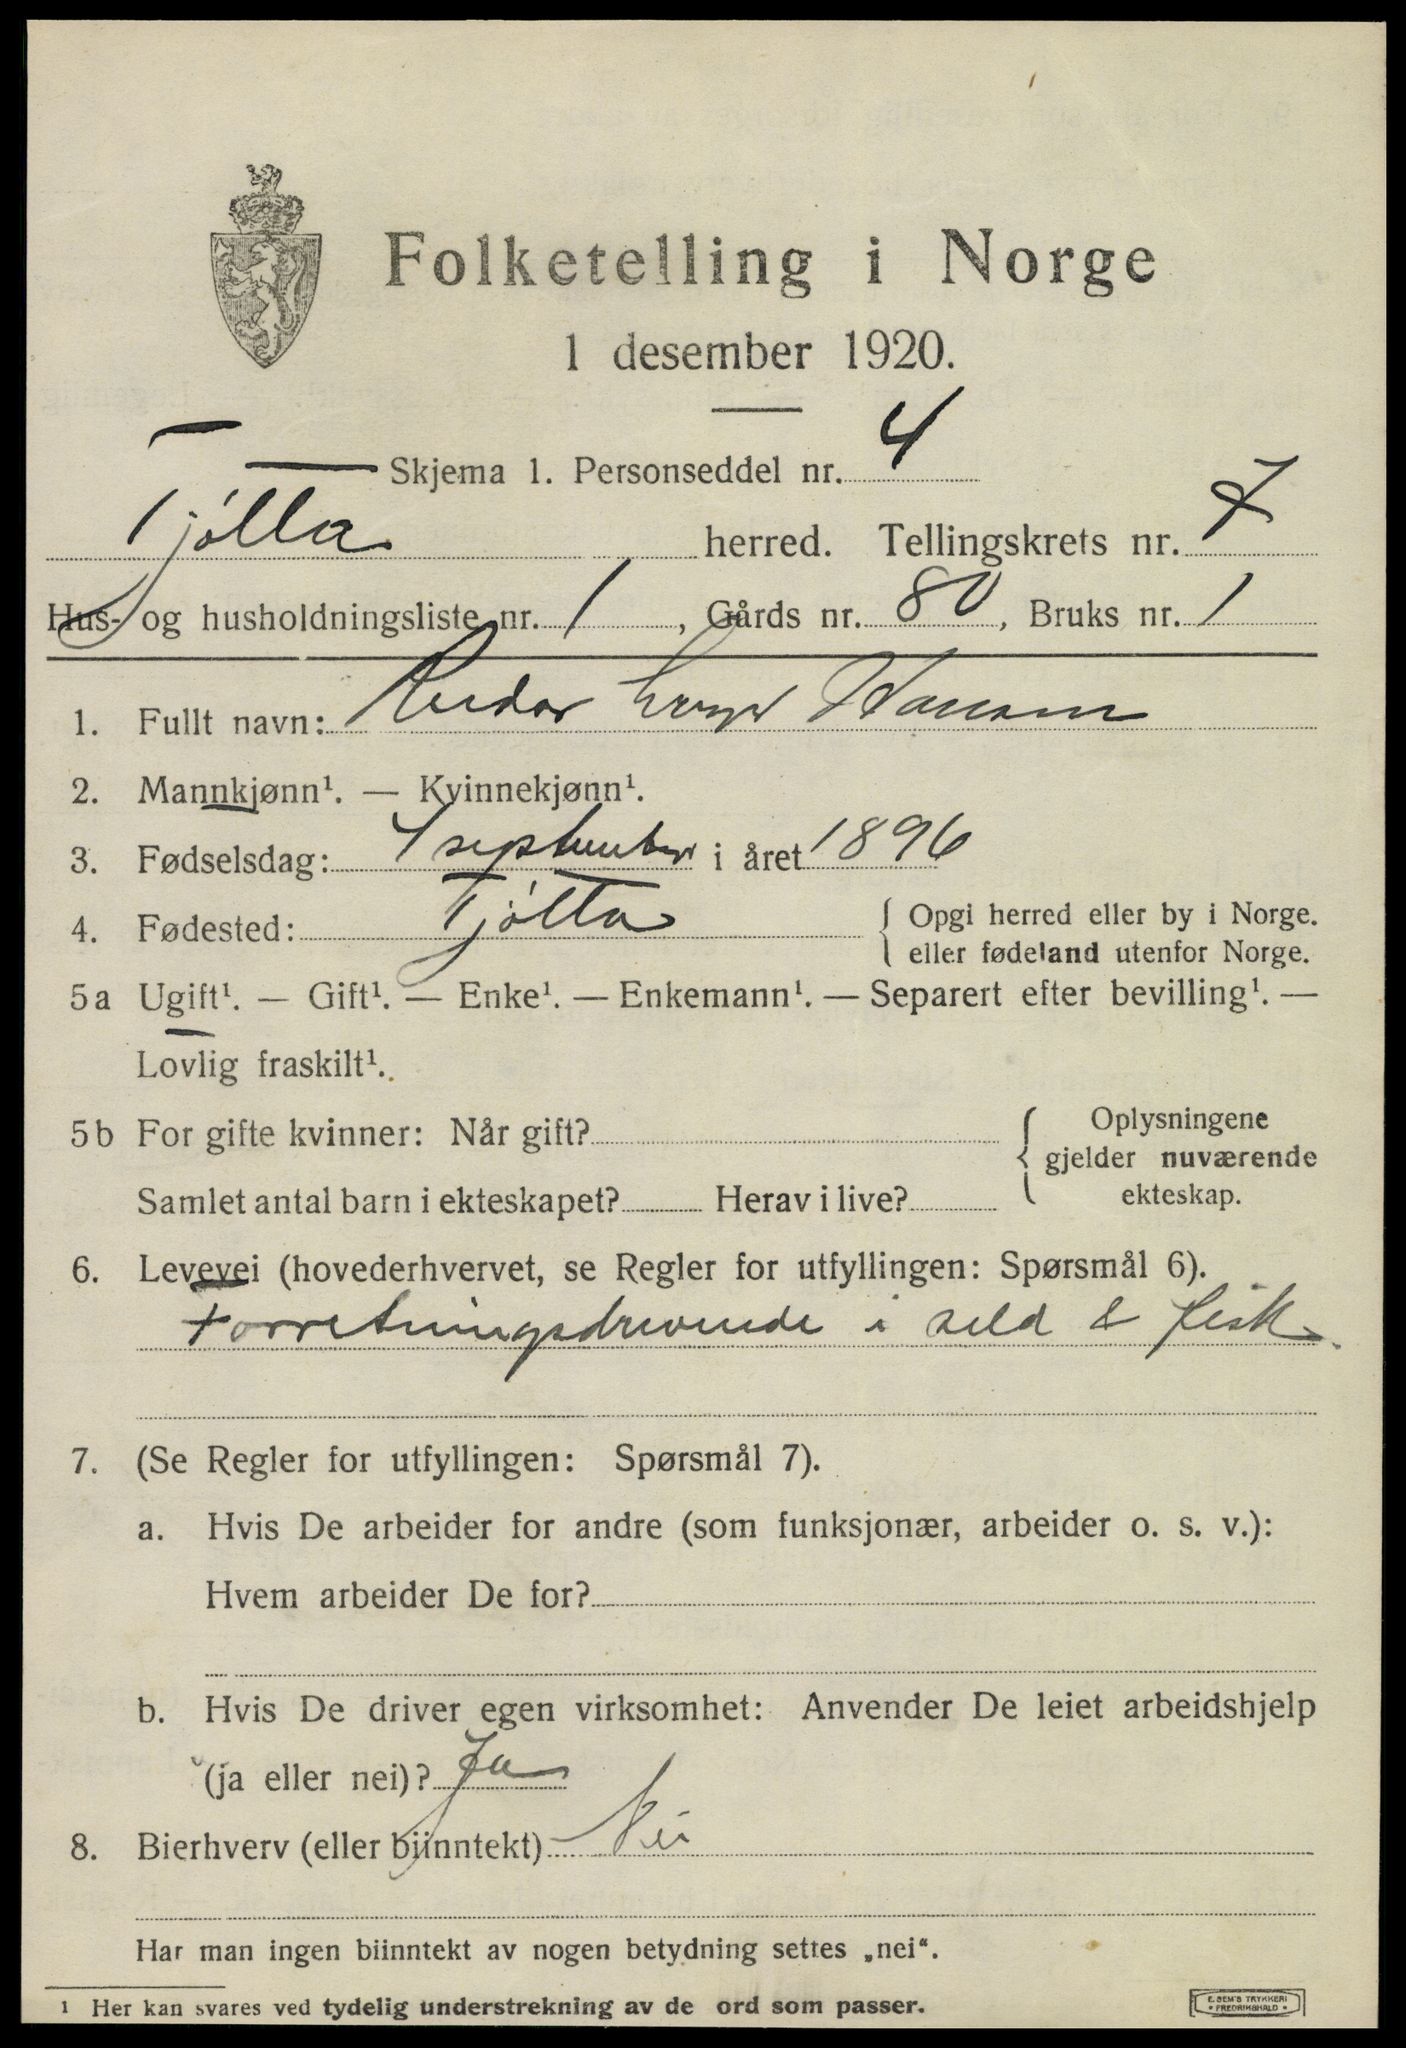 Folketelling i Norge
1 desember 1920.
Skjema 1. Personseddel nr. 4
Tjøtta herred. Tellingskrets nr. 7
Hus- og husholdningsliste nr. 1, Gårds nr. 80, Bruks nr. 1
1. Fullt navn: Hansen
2. Mannkjønn¹. — Kvinnekjønn¹.
3. Fødselsdag: 4 september i året 1896
4. Fødested: Tjótta { Opgi herred eller by i Norge.
eller fødeland utenfor Norge.
5a Ugift¹. — Gift¹. — Enke¹. — Enkemann¹. — Separert efter bevilling¹. —
Lovlig fraskilt¹.
5b For gifte kvinner: Når gift? { Oplysningene
gjelder nuværende
Samlet antal barn i ekteskapet? Herav i live? ekteskap.
6. Levevei (hovederhvervet, se Regler for utfyllingen: Spørsmål 6).
Forretningsdrivende i sild & fisk.
7. (Se Regler for utfyllingen: Spørsmål 7).
a. Hvis De arbeider for andre (som funksjonær, arbeider o. s. v.):
Hvem arbeider De for?
b. Hvis De driver egen virksomhet: Anvender De leiet arbeidshjelp
(ja eller nei)? Ja
8. Bierhverv (eller biinntekt) Nei
Har man ingen biinntekt av nogen betydning settes „nei“.
1 Her kan svares ved tydelig understrekning av de ord som passer.
E. SEM'S TRYKKERI
• FREDRIKSHALD •